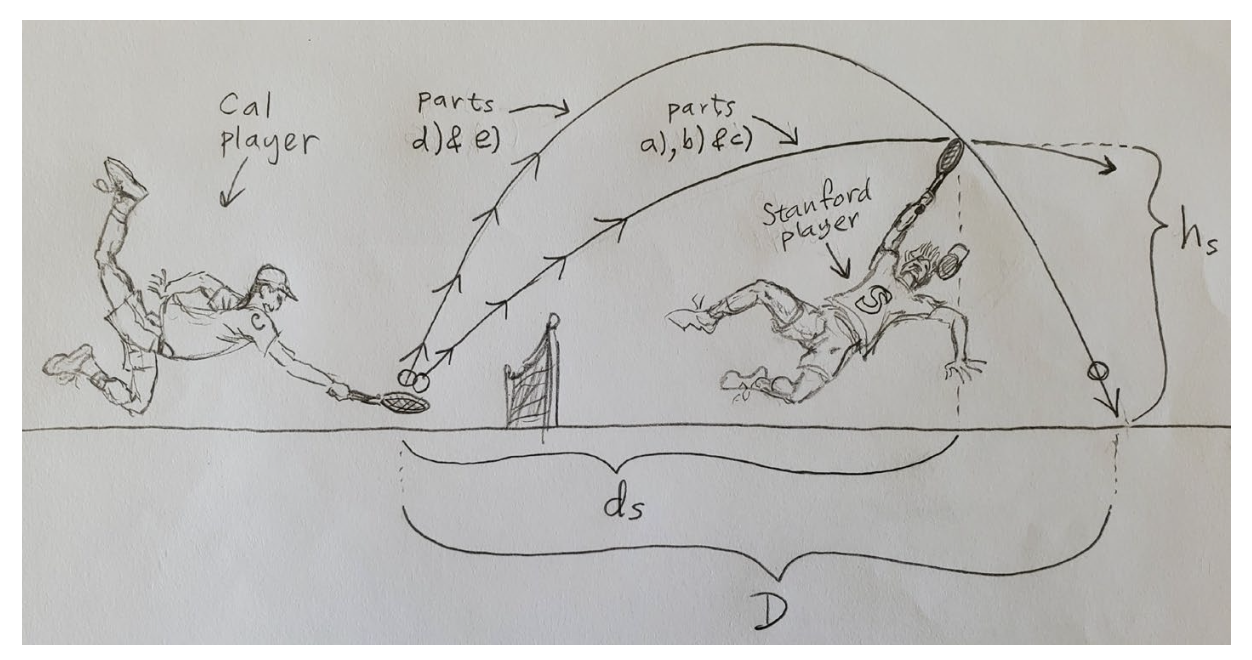 Cal
player
parts
d) & e)
parts
a), b) & c)
Stanford
player
C
S
hs
ds
D